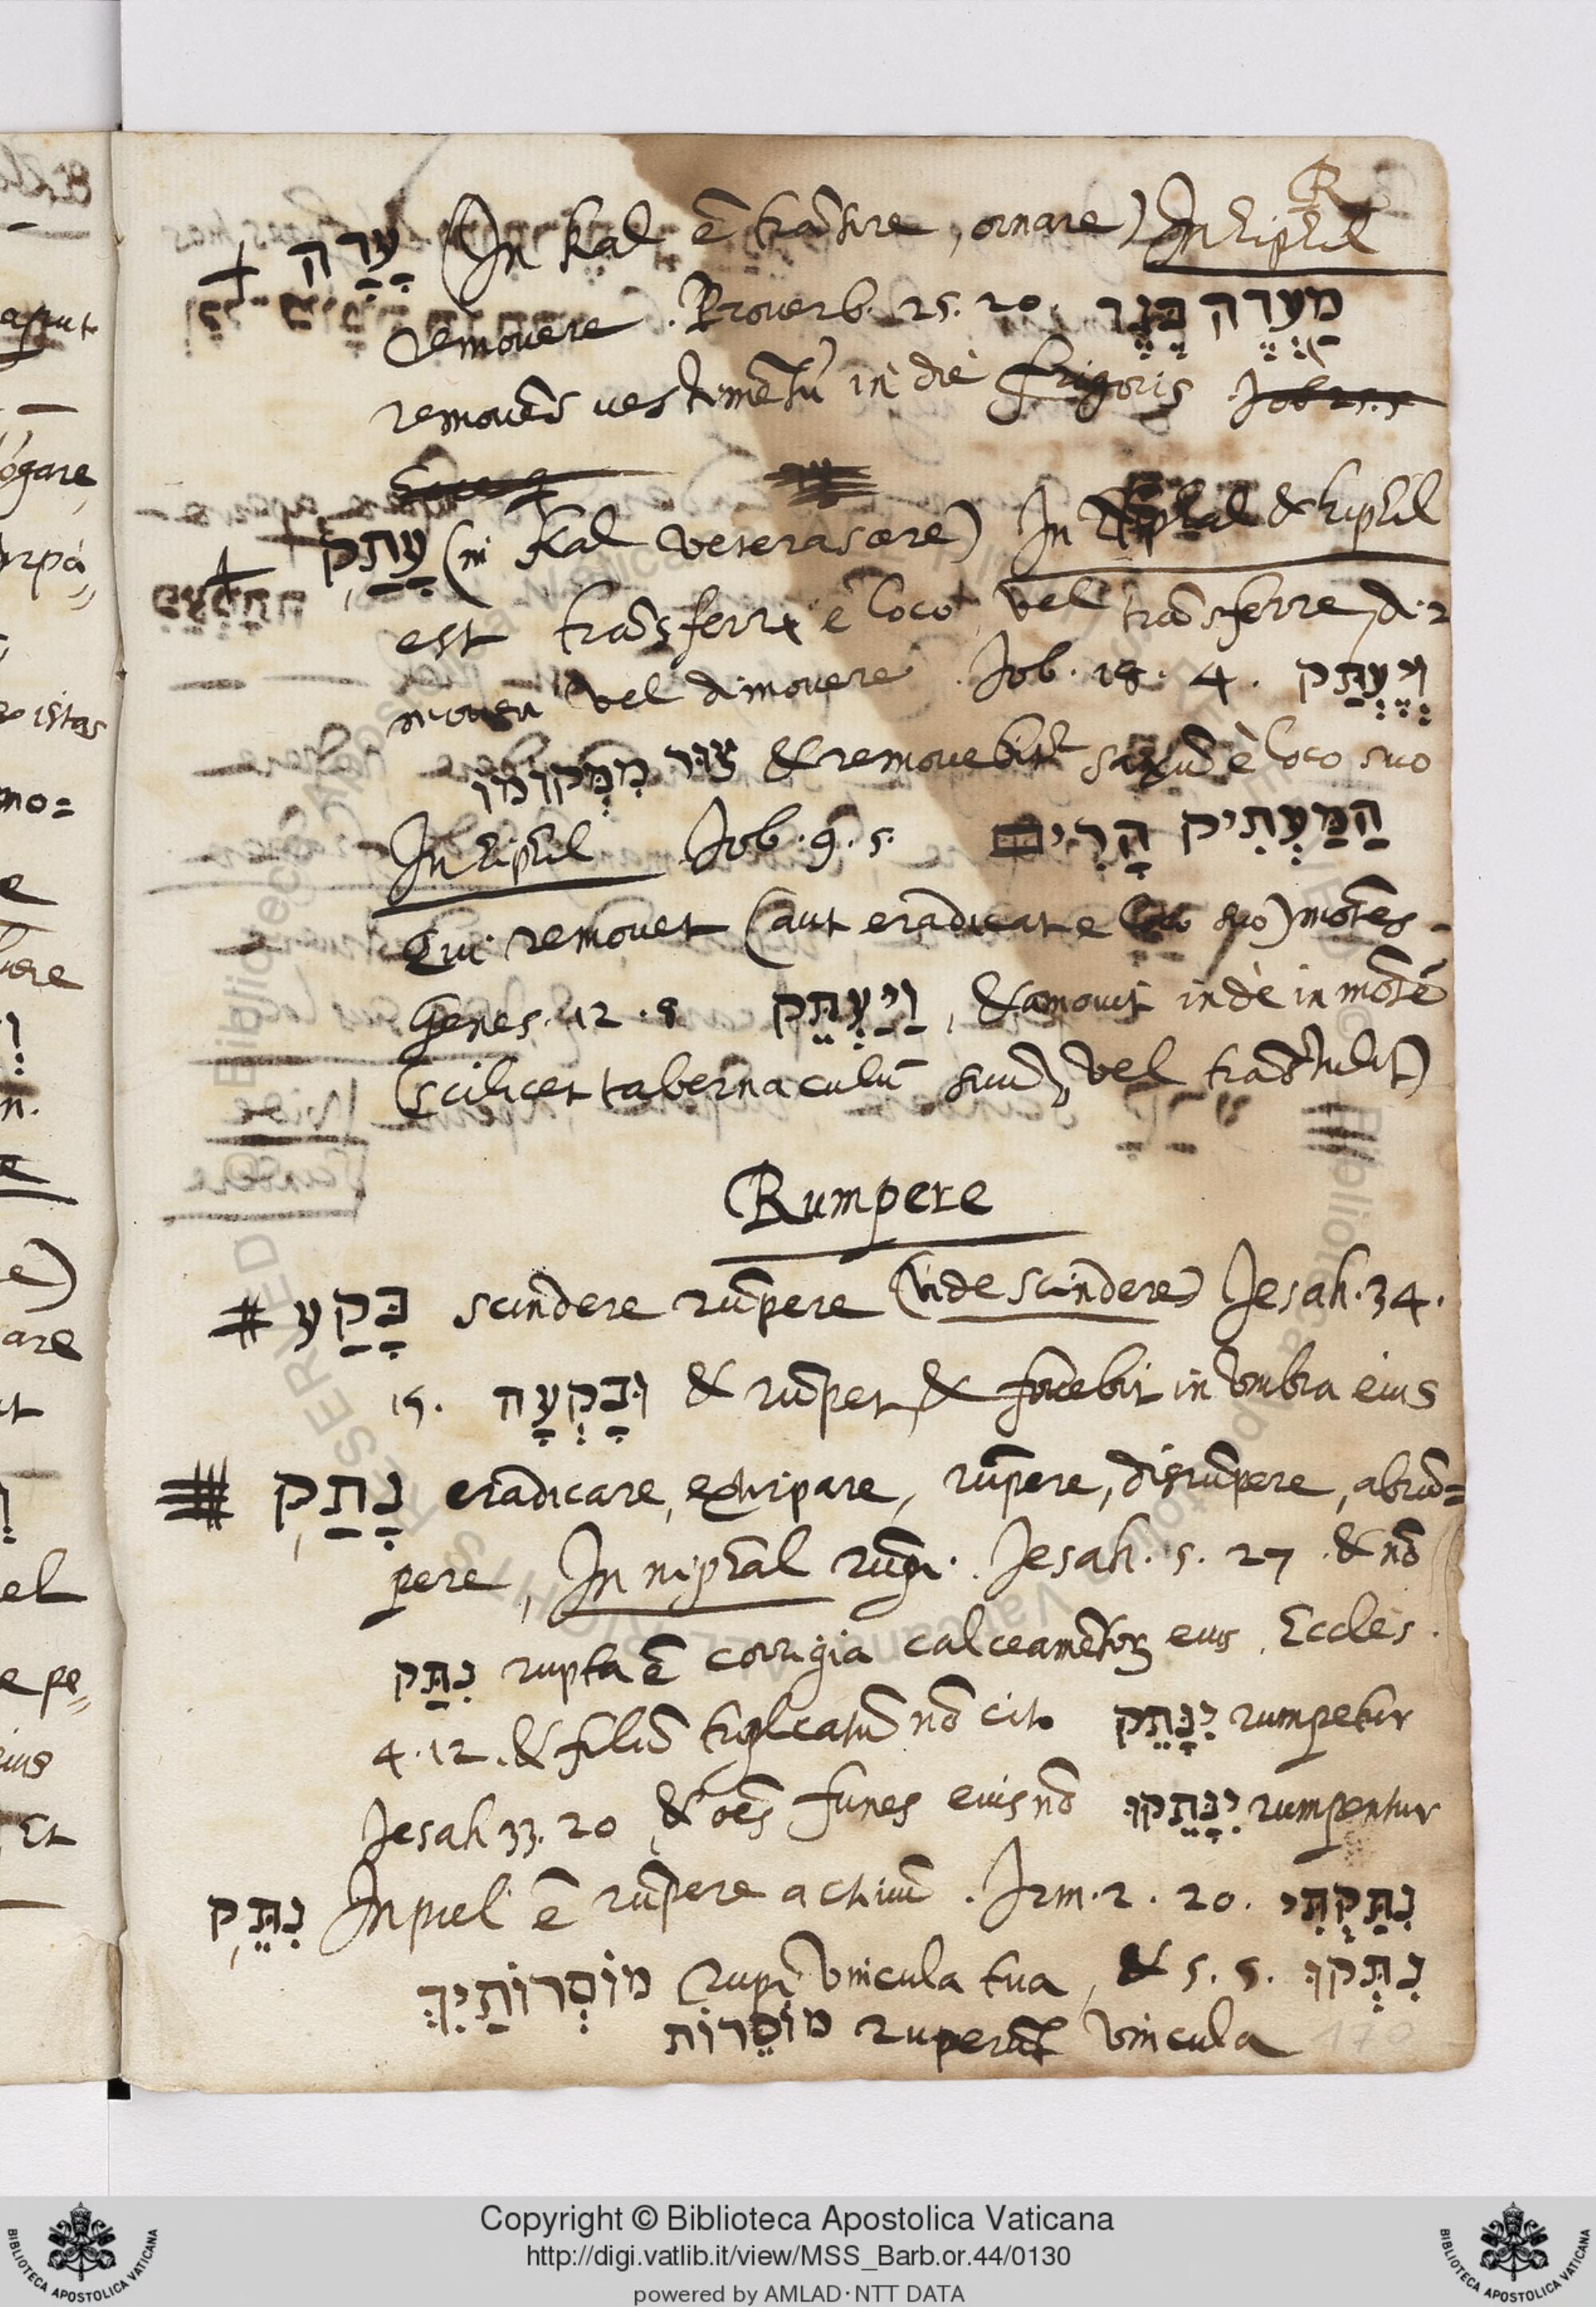 R
עָדַה (In Kal ē trāsire, ornare) In hiphil
Remouere. Prouerb. 25. 20. מַעֲדֶה בֶּגֶד
remouēs uestimētū in die frigoris Job 25. 5
עָתַק (in Kal veterascere) In & hiphil
est trāsferri è loco, vel trāsferre, di=
moueri vel dimouere. Job. 18. 4. וְיֶעְתַּק
צוּר מִמְּקוֹמוֹ & remouebitr saxū è loco suo
In hiphil Job. 9. 5. הַמַּעְתִּיק הָרִים
Qui remouet (aut eradicat e loco suo) mōtes.
Genes. 12. 8 וַיַּעְתֵּק, & amouit indè in mōtē
(scilicet tabernaculū suū, vel trāstulit)
Rumpere
בָּקַע scindere rūpere (vide scindere) Jesah. 34.
15. וּבָקְעָה & rūpet & fouebit in vmbra eius
נָתַק eradicare, extirpare, rūpere, disrūpere, abrū=
pere, In niphal rūpi. Jesah. 5. 27. & nō
נִתַּק rupta ē corrigia calceamētorū eius. Eccles.
4. 12. & filū triplicatū nō cito יִנָּתֵק rumpetur
Jesah 33. 20 & oēs funes eius nō יִנָּתֵקוּ rumpentur
נִתֵּק In piel ē rūpere actiuū. Irm. 2. 20. נִתַּקְתִּי
מוֹסְרוֹתַיִךְ rupi vincula tua, & 5. 5. נִתְּקוּ
מוֹסֵרוֹת ruperūt vincula
170
aput
ogare
irpa=
istas
mo=
e
n.
e)
are
el
e pe=
eius
Et
Copyright © Biblioteca Apostolica Vaticana
http://digi.vatlib.it/view/MSS_Barb.or.44/0130
powered by AMLAD·NTT DATA
BIBLIOTECA APOSTOLICA VATICANA
BIBLIOTECA APOSTOLICA VATICANA